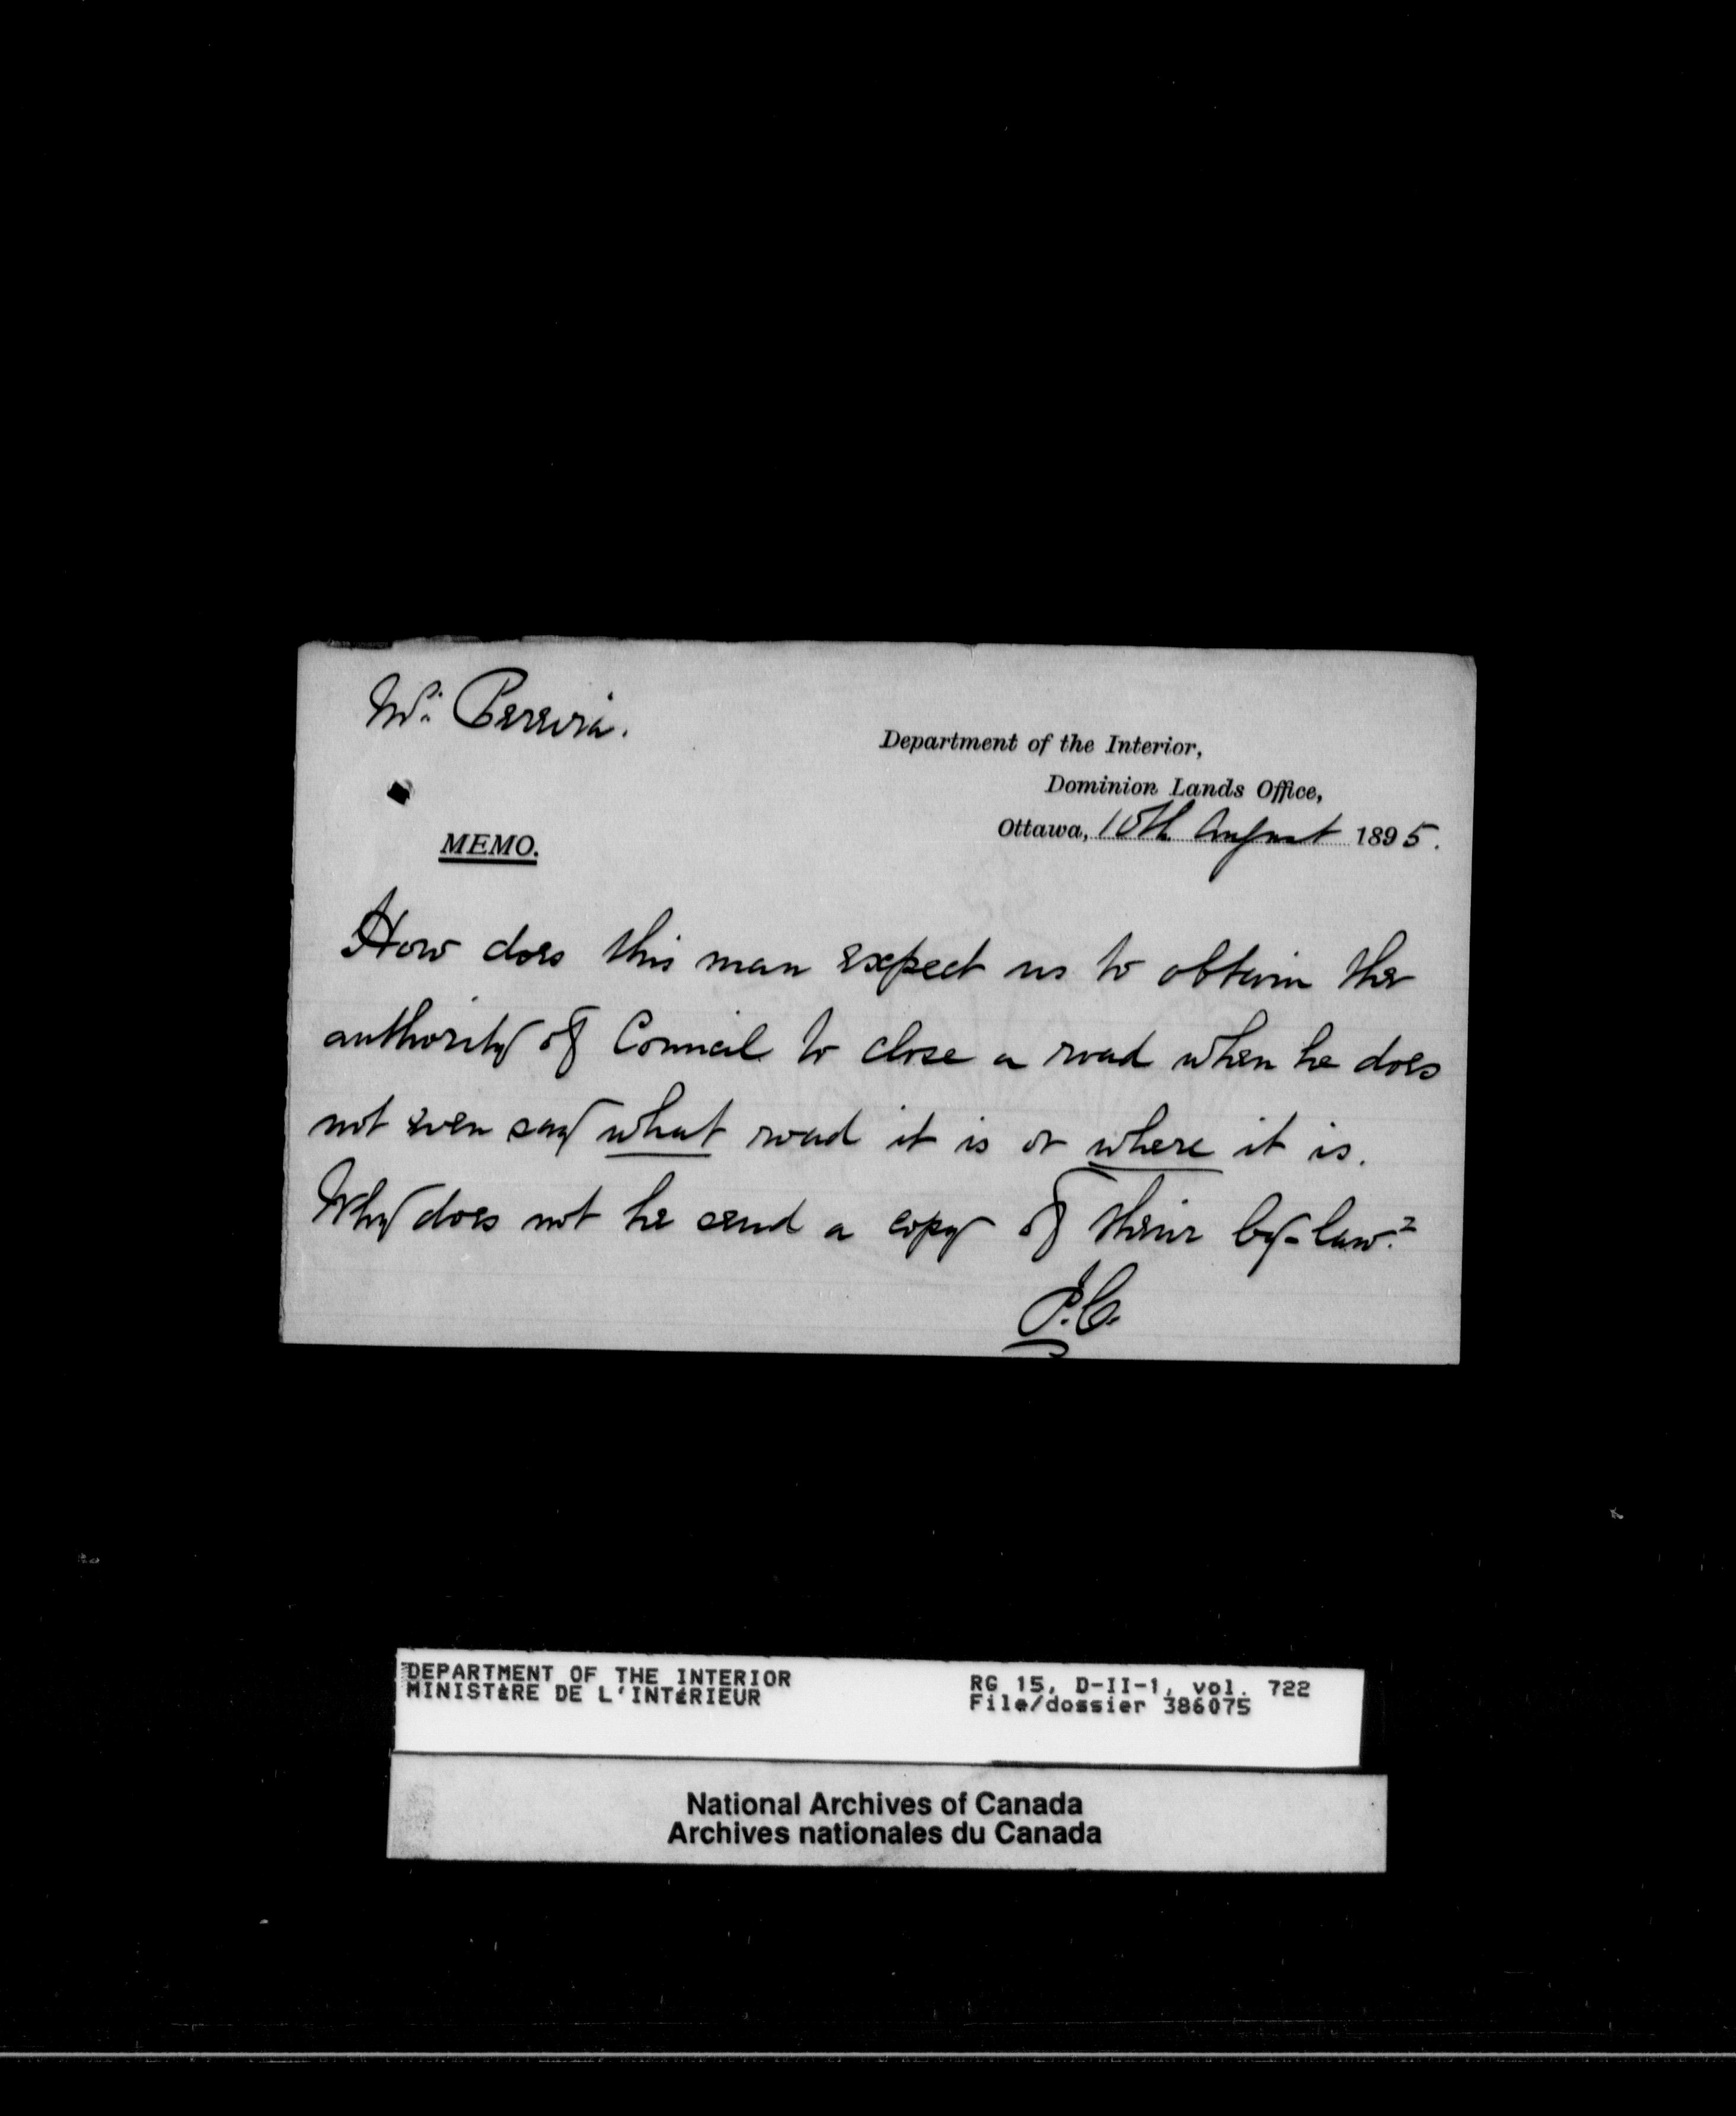 Mr. Pereira.
Department of the Interior,
Dominion Lands Office,
Ottawa, 10th August 1895.
MEMO.
How does this man expect us to obtain the
authority of Council to close a road when he does
not even say what road it is or where it is.
Why does not he send a copy of their by-law?
P.C.
DEPARTMENT OF THE INTERIOR
MINISTÈRE DE L'INTÉRIEUR
RG 15, D-II-1, vol. 722
File/dossier 386075
National Archives of Canada
Archives nationales du Canada